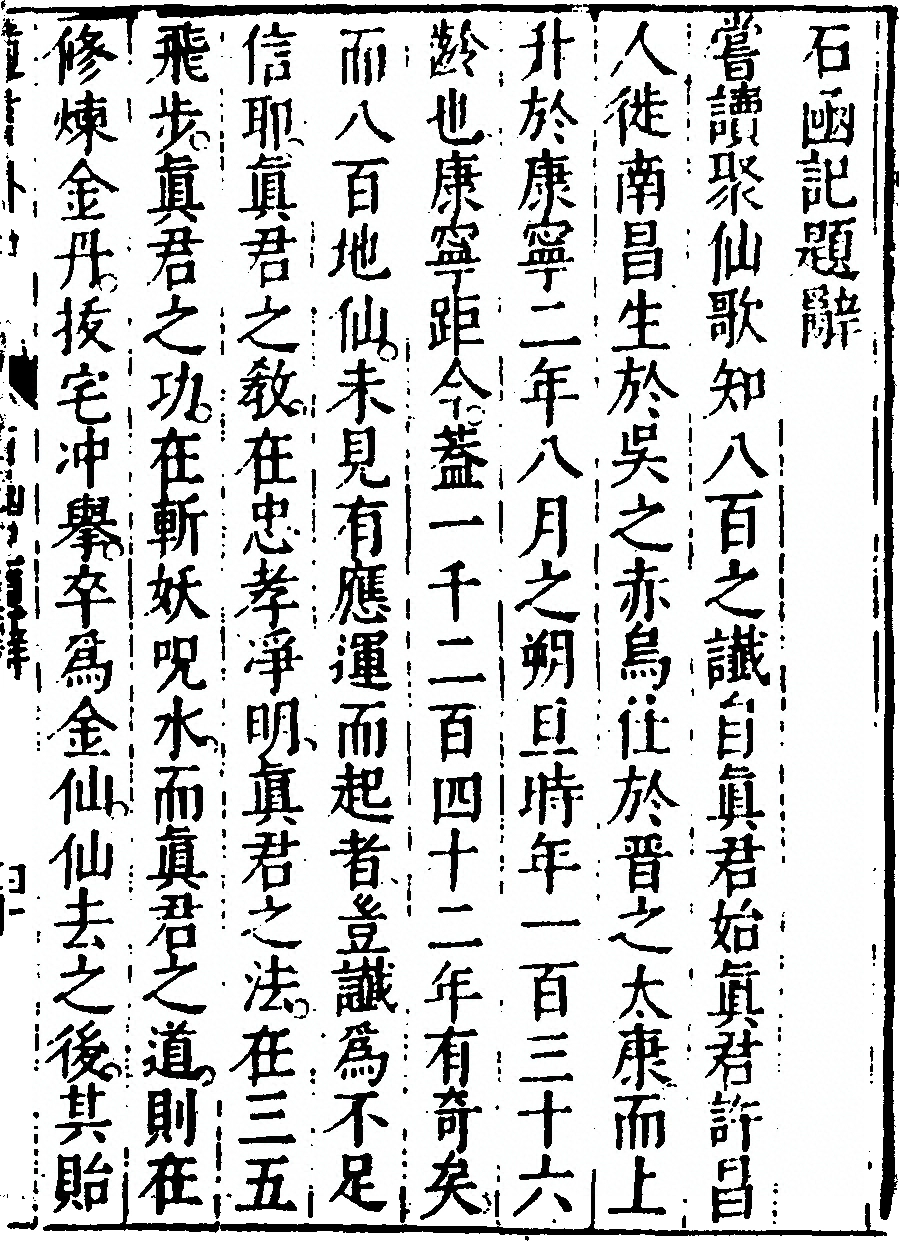 石函記題辭
嘗讀聚仙歌知八百之讖自眞君始眞君許昌
人徙南昌生於吳之赤烏仕於晋之太康而上
升於康寧二年八月之朔旦時年一百三十六
齡也康寧距今蓋一千二百四十二年有奇矣
而八百地仙未見有應運而起者豈讖爲不足
信耶眞君之敎在忠孝淨明眞君之法在三五
飛步眞君之功在斬妖呪水而眞君之道則在
修煉金丹拔宅冲擧卒爲金仙仙去之後其貽